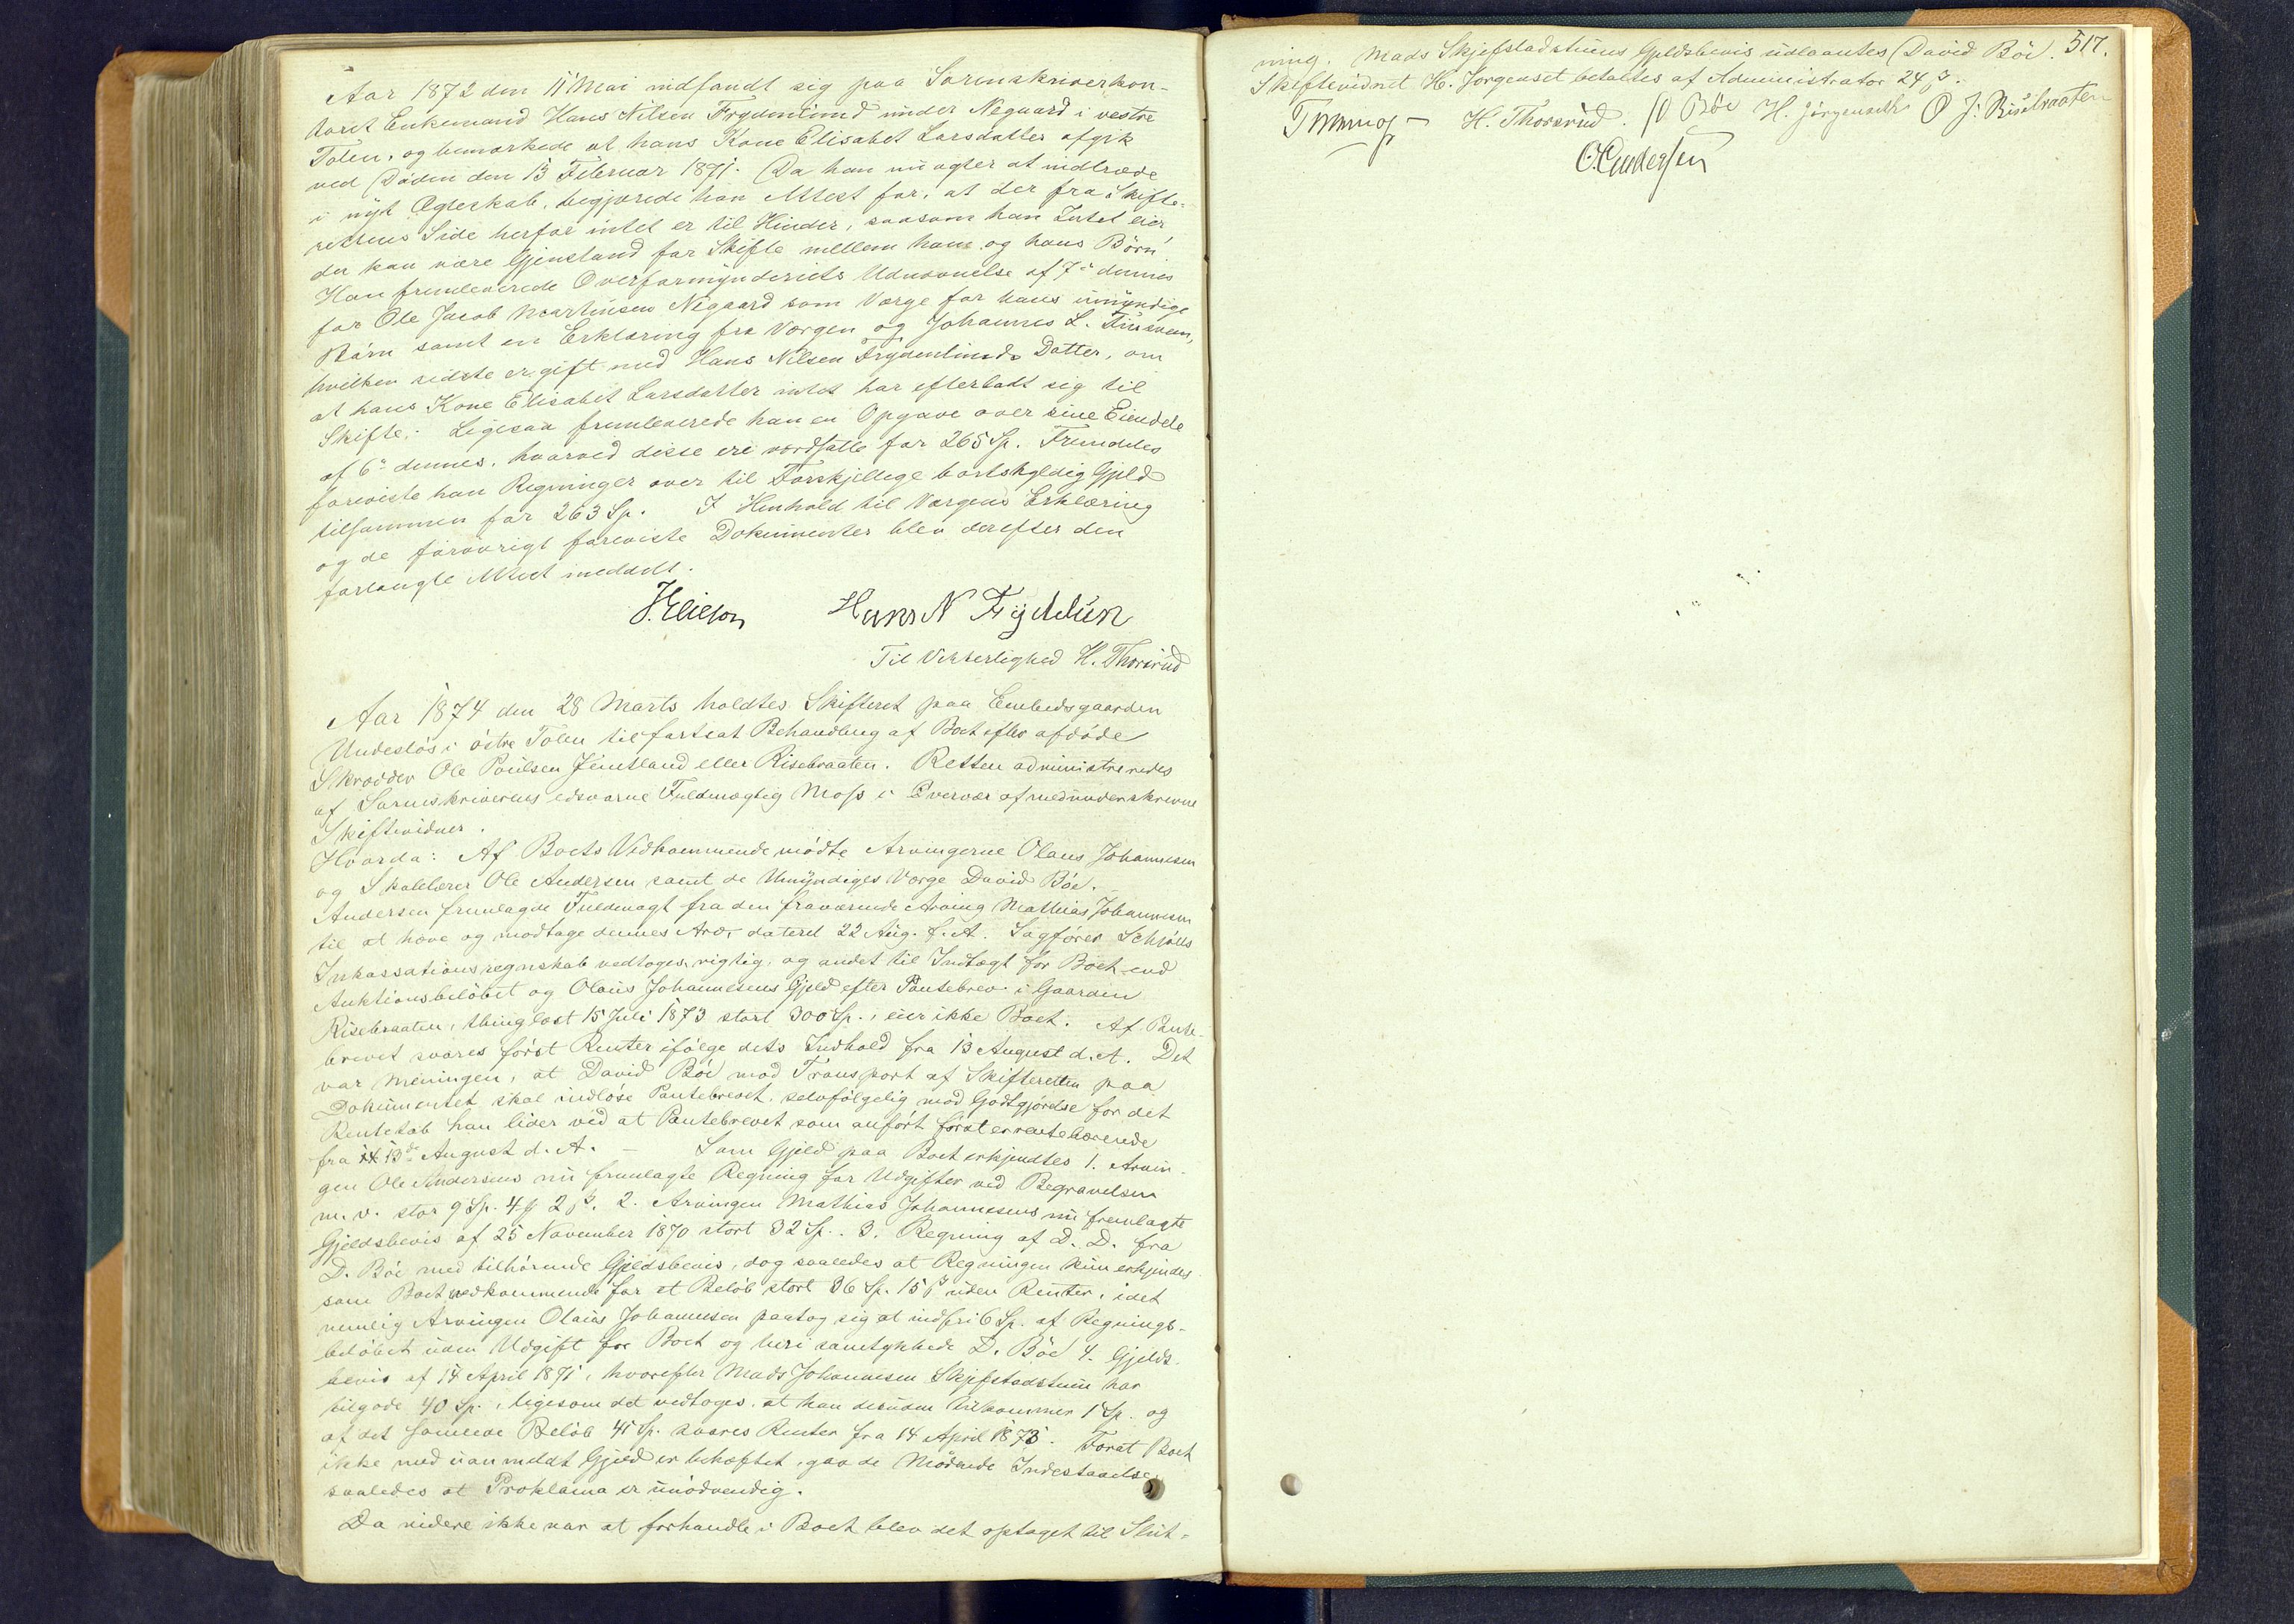 Aar 1872 den 11 Mai indfandt sig paa Sorenskriverkon-
toret Enkemand Hans Nilsen Frydenlund under Negaard i vestre
Toten, og bemærkede at hans Kone Elisabet Larsdatter afgik
ved Døden den 13 Februar 1871. Da han nu agter at indtræde
i nyt Ægteskab, begjærede han Attest for, at der fra Skifte-
rettens Side herfor intet er til Hinder, saasom han Intet eier
der kan være Gjenstand for Skifte mellem ham og hans Børn.
Han fremleverede Overformynderiets Udnævnelse af 7de dennes
for Ole Jacob Martinsen Negaard som Værge for hans umyndige
Børn samt en Erklæring fra Værgen og Johannes L.
hvilken sidste er gift med Hans Nilsen Frydenlunds Datter, om
at hans Kone Elisabet Larsdatter intet har efterladt sig til
Skifte. Ligesaa fremleverede han en Opgave over sine Eiendele
af 6te dennes, hvorved disse ere værdsatte for 265 Sp. Fremdeles
foreviste han Regninger over til Forskjellige bortskyldig Gjeld
tilsammen for 263 Sp. I Henhold til Værgens Erklæring
og de forøvrigt foreviste Dokumenter blev derefter den
forlangte Attest meddelt.
Hans N Frydelun
Til Vitterlighed H. Thorsrud
Aar 1874 den 28 Marts holdtes Skifteret paa Embedsgaarden
i østre Toten til fortsat Behandling af Boet efter afdøde
Skrædder Ole Poulsen eller Risebraaten. Retten administreredes
af Sorenskriverens edsvorne Fuldmægtig Moss i Overvær af medunderskrevne
Skiftevidner.
Hvorda: Af Boets Vedkommende mødte Arvingerne Olaus Johannesen
og Skolelærer Ole Andersen samt de Umyndiges Værge David Bøe. –
Andersen fremlagde Fuldmagt fra den fraværende Arving Mathias Johannesen
til at hæve og modtage dennes Arv, dateret 22 Aug. f. A. Sagfører Schjølls
Inkassationsregnskab vedtoges rigtig, og andet til Indtægt for Boet end
Auktionsbeløbet og Olaus Johannesens Gjeld efter Pantebrev i Gaarden
Risebraaten, thinglæst 15 Juli 1873 stort 300 Sp., eier ikke Boet. Af Pante-
brevet svares først Renter ifølge dets Indhold fra 13 August d. A. Det
var Meningen, at David Bøe mod Transport af Skifteretten paa
Dokumentet skal indløse Pantebrevet, selvfølgelig mod Godtgjørelse for det
Rentetab han lider ved at Pantebrevet som anført først er rentebærende
fra 13de August d. A. – Som Gjeld paa Boet erkjendtes 1. Arvin-
gen Ole Andersens nu fremlagte Regning for Udgifter ved Begravelsen
m. v. stor 9 Sp. 4 ℳ 2 ß. 2. Arvingen Mathias Johannesens nu fremlagte
Gjeldsbevis af 25 November 1870 stort 32 Sp. 3. Regning af D. D. fra
D. Bøe med tilhørende Gjeldsbevis, dog saaledes at Regningen kun erkjendes
som Boet vedkommende for et Beløb stort 36 Sp. 15 ß uden Renter, idet
nemlig Arvingen Olaus Johannesen paatog sig at indfri 6 Sp. af Regnings-
beløbet uden Udgift for Boet og heri samtykkede D. Bøe 4. Gjelds-
bevis af 14 April 1871, hvorefter Mads Johannesen Skjefstadstuen har
tilgode 40 Sp., ligesom det vedtoges, at han desuden tilkommer 1 Sp. og
af det samlede Beløb 41 Sp. svares Renter fra 14 April 1873. Forat Boet
ikke med uanmeldt Gjeld er behæftet, gav de Mødende Indestaaelse
saaledes at Proklama er unødvendig.
Da videre ikke var at forhandle i Boet blev det optaget til Slut-
517.
ning. Mads Skjefstadstuens Gjeldsbevis udlaantes David Bøe.
Skiftevidnet H. Jørgenset betaltes af Administrator 24 ß.
H. Thorsrud. D Bøe H. Jørgenseth O J. Risebraaten
O. Andersen